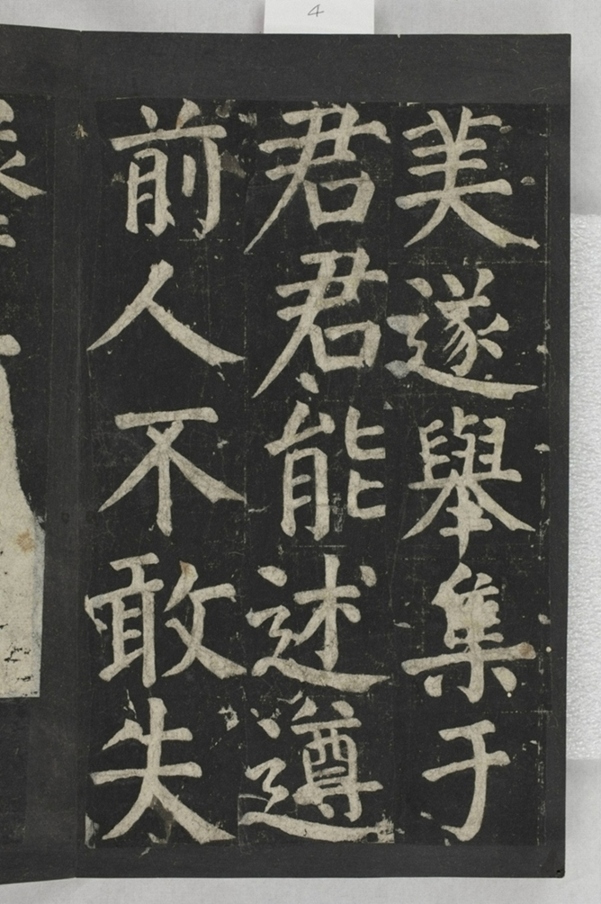 4
美遂舉集于
君君能述遵
前人不敢失